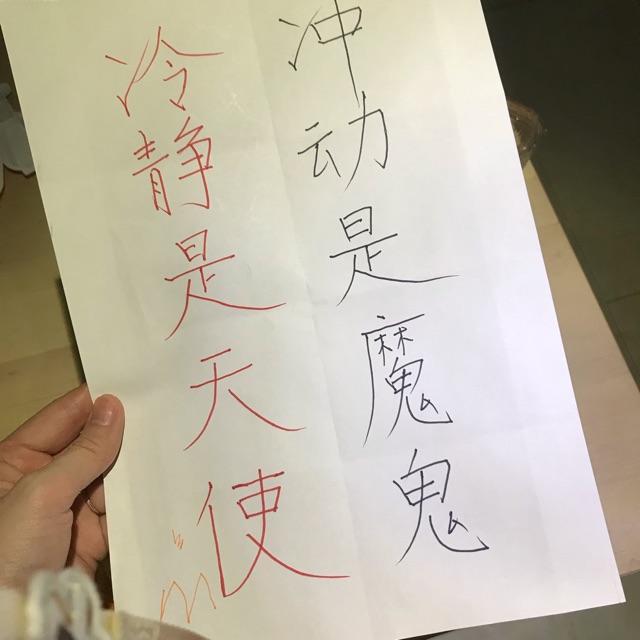 冲动是魔鬼
冷静是天使